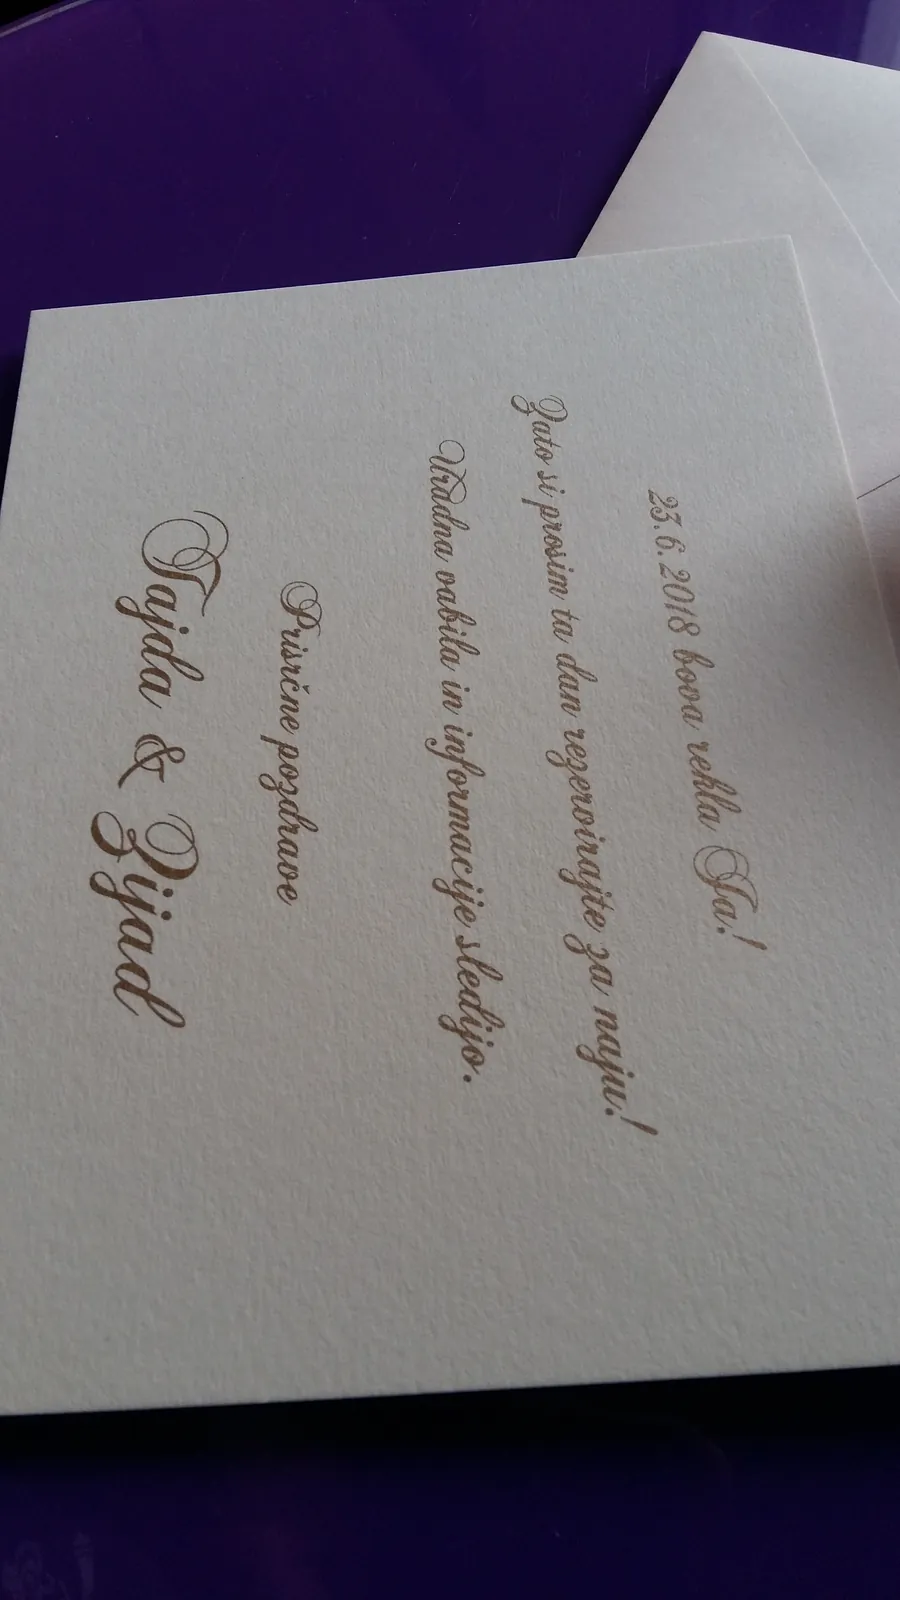 23.6.2018 bova rekla Ja!
Zato si prosim ta dan rezervirajte za naju!
Uradna vabila in informacije sledijo.
Prisrčne pozdrave
Tajda & Zijad